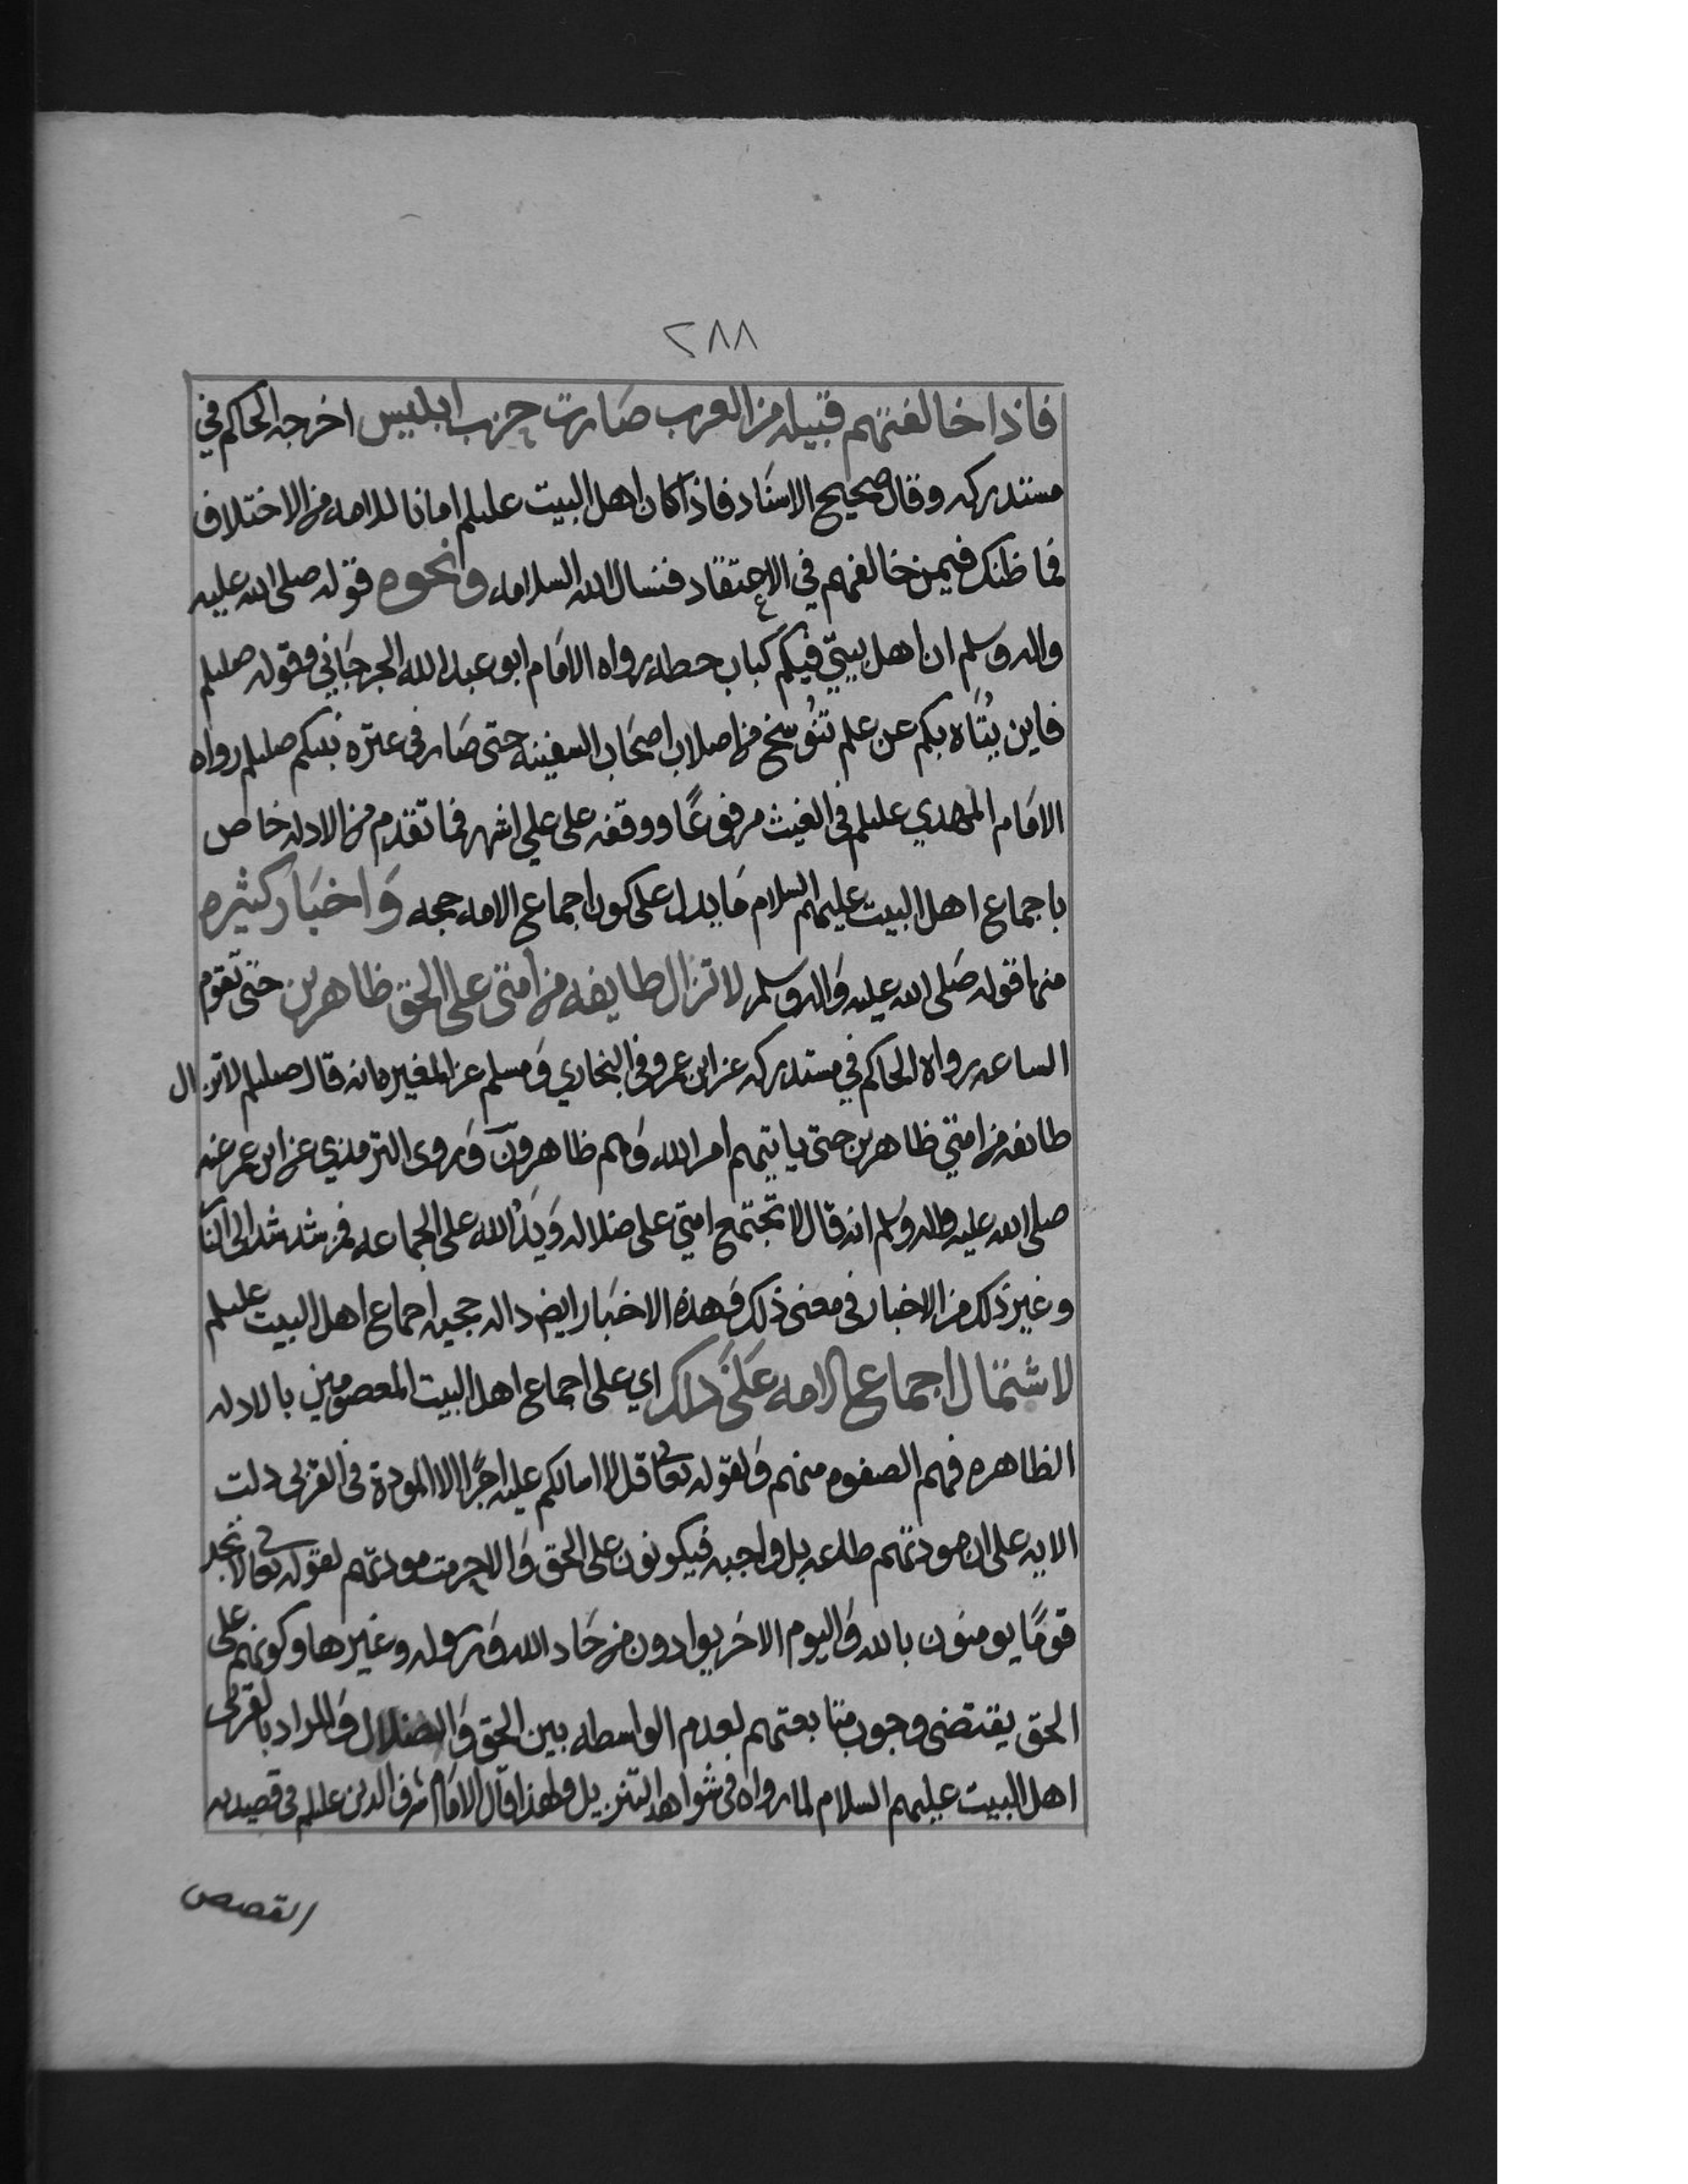 ٢٨٨
فاذا خالفتهم قبيله من العرب صَارت حزب ابليس اخرجه الحاكم في
مستدركه وقال صحيح الاسنَاد فاذا كان اهل البيت عليلم امانا للامه من الاختلاف
فما ظنك فيمن خالفهم في الاعتقاد فنسال الله السلامه ونحوه قوله صلى الله عليه
واله وسلم ان اهل بيتي فيكم كباب حطه رواه الامَام ابو عبد الله الجرجَاني وقوله صلىلم
فاين يُتَاه بكم عن علم تنُوسخ من اصلاب اصحَاب السفينه حتى صَار في عتره نبيكم صلىلم رواه
الامَام المهدي عليلم في الغيث مرفوعًا ووقفه على علي اشهر فما تقدم من الادله خاص
باجماع اهل البيت عليهم السلام مَا يدل على كون اجماع الامه حجه وَاخبَار كثيره
منها قوله صَلى الله عليه وَاله وسلم لا تزال طايفه من امتي على الحق ظاهرين حتى تقوم
الساعه رواه الحاكم في مستدركه عن ابن عمر وفي البخاري وَمسلم عن المغيره انه قال صلىلم لا تزال
طائفه من امتي ظاهرين حتى ياتيهم امر الله وَهم ظاهرون وَروى الترمذي عن ابن عمر عنه
صلى الله عليه واله وسلم انه قال لا تجتمع امتي على ضلاله وَيَدُ الله على الجماعه فمن شذ شذ الى النَا
وغير ذلك من الاخبار في معنى ذلك وَهذه الاخبَار ايض داله حجيه اجماع اهل البيت عليلم
لاشتمال اجماع الامه عَلَى ذلك اي على اجماع اهل البيت المعصومين بالادله
الظاهره فهم الصفوه منهم وَلقوله تعالى قل لا اسالكم عليه اجرًا الا المودة في القربى دلت
الايه على ان مودتهم طاعه بل واجبه فيكونون على الحق وَالا حرمت مودتهم لقوله تعالى لا تجد
قومًا يومنون بالله وَاليوم الاخَر يوادون من حَاد الله وَرسوله وغيرها وكونهم على
الحق يقتضي وجوب متابعتهم لعدم الواسطه بين الحق وَالضلال وَالمراد بالقربى
اهل البيت عليهم السلام لما رواه في شواهد التنزيل ولهذا قال الامَام شرف الدين عليلم في قصيدته
القصص